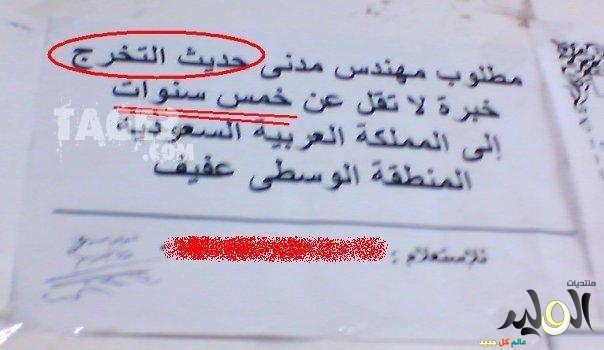 مطلوب مهندس مدنى حديث التخرج
خبرة لا تقل عن خمس سنوات
إلى المملكة العربية السعودية
المنطقة الوسطى عفيف
للإستعلام :
TAGEZ
.COM
منتديات
الوليد
عالم كل جديد